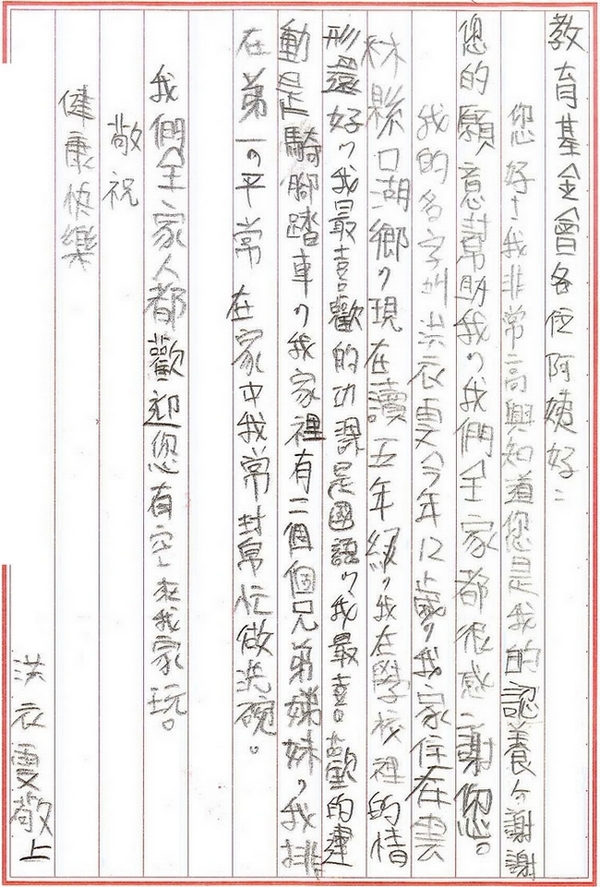 教育基金會各位阿姨好：
您好！我非常高興知道您是我的認養人謝謝
您的願意幫助我，我們全家都很感謝您。
我的名字叫洪衣雯今年12歲，我家住在雲
林縣口湖鄉，現在讀五年級，我在學校裡的情
形還好，我最喜歡的功課是國語，我最喜歡的運
動是騎腳踏車，我家裡有二個個兄弟娣妹，我排
在第一，平常在家中我常封幫忙做洗碗。
我們全家人都歡迎您有空來我家玩。
敬祝
健康快樂
洪衣雯敬上